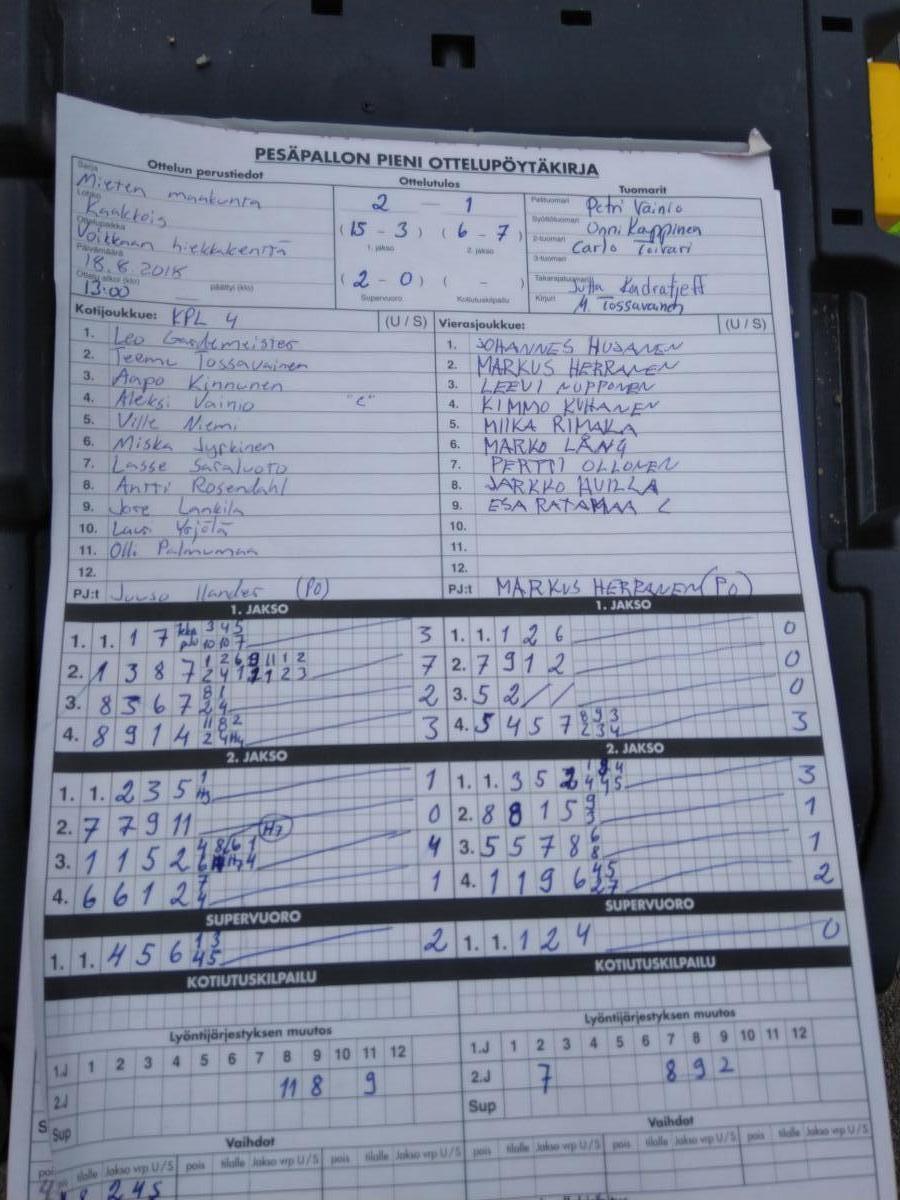 PESÄPALLON PIENI OTTELUPÖYTÄKIRJA
Ottelun perustiedot Ottelutulos Tuomarit
Sarja Miesten maakunta
Lohko Kaakkois
Ottelupaikka Voikkaan hiekkakenttä
Päivämäärä 18.8.2018
Ottelu alkoi (klo) 13:00 päättyi (klo)
2 — 1
(15 - 3) (6 - 7)
1. jakso 2. jakso
(2 - 0) ( - )
Supervuoro Kotiutuskilpailu
Pelituomari Petri Vainio
Syöttötuomari Onni Kappinen
2-tuomari Carlo Toivari
3-tuomari
Takarajatuomarit Jutta Kondratjeff
Kirjuri M. Tossavainen
Kotijoukkue: KPL 4 (U / S)
1. Leo Gardemeister
2. Teemu Tossavainen
3. Aapo Kinnunen
4. Aleksi Vainio "C"
5. Ville Niemi
6. Miska Jyrkinen
7. Lasse Saraluoto
8. Antti Rosendahl
9. Jore Lankila
10. Lauri Yrjölä
11. Olli Palmumaa
12.
PJ:t Juuso Ilander (PO)
Vierasjoukkue: (U / S)
1. JOHANNES HUJANEN
2. MARKUS HERRANEN
3. LEEVI NUPPONEN
4. KIMMO KUHANEN
5. MIIKA RIMALA
6. MARKO LÅNG
7. PERTTI OLLONEN
8. JARKKO HUILLA
9. ESA RATAMAA C
10.
11.
12.
PJ:t MARKUS HERRANEN (PO)
1. JAKSO 1. JAKSO
1. 1. 1 7 3 4 5 10 10 7 3
2. 1 3 8 7 7
3. 8 5 6 7 8 1 2 4 2
4. 8 9 1 4 11 8 2 2 4 H4 3
1. 1. 1 2 6 0
2. 7 9 1 2 0
3. 5 2 / / 0
4. 5 4 5 7 8 9 3 2 3 4 3
2. JAKSO 2. JAKSO
1. 1. 2 3 5 1 H3 1
2. 7 7 9 11 H7 0
3. 1 1 5 2 4
4. 6 6 1 2 7 4 1
1. 1. 3 5 2 3
2. 8 8 1 5 9 3 1
3. 5 5 7 8 6 8 1
4. 1 1 9 6 4 5 2 7 2
SUPERVUORO SUPERVUORO
1. 1. 4 5 6 1 3 4 5 2
1. 1. 1 2 4 0
KOTIUTUSKILPAILU KOTIUTUSKILPAILU
Lyöntijärjestyksen muutos Lyöntijärjestyksen muutos
1.J 1 2 3 4 5 6 7 8 9 10 11 12
2.J 11 8 9
Sup
1.J 1 2 3 4 5 6 7 8 9 10 11 12
2.J 7 8 9 2
Sup
Vaihdot Vaihdot
pois tilalle Jakso vrp U/S pois tilalle Jakso vrp U/S pois tilalle Jakso vrp U/S
pois tilalle Jakso vrp U/S pois tilalle Jakso vrp U/S pois tilalle Jakso vrp U/S